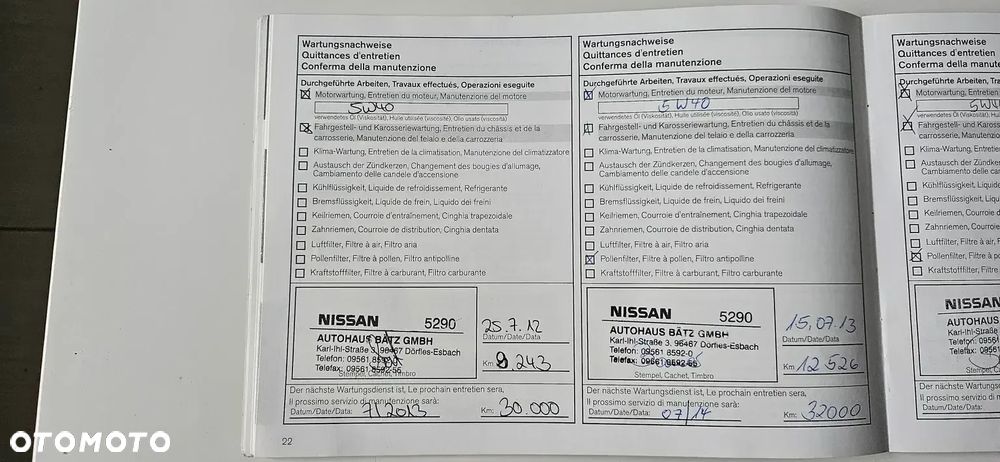 Wartungsnachweise
Quittances d'entretien
Conferma della manutenzione
Durchgeführte Arbeiten, Travaux effectués, Operazioni eseguite
Motorwartung, Entretien du moteur, Manutenzione del motore
5W40
verwendetes Öl (Viskosität), Huile utilisée (viscosité), Olio usato (viscosità)
Fahrgestell- und Karosseriewartung, Entretien du châssis et de la
carrosserie, Manutenzione del telaio e della carrozzeria
Klima-Wartung, Entretien de la climatisation, Manutenzione del climatizzatore
Austausch der Zündkerzen, Changement des bougies d'allumage,
Cambiamento delle candele d'accensione
Kühlflüssigkeit, Liquide de refroidissement, Refrigerante
Bremsflüssigkeit, Liquide de frein, Liquido dei freini
Keilriemen, Courroie d'entraînement, Cinghia trapezoidale
Zahnriemen, Courroie de distribution, Cinghia dentata
Luftfilter, Filtre à air, Filtro aria
Pollenfilter, Filtre à pollen, Filtro antipolline
Kraftstofffilter, Filtre à carburant, Filtro carburante
NISSAN 5290
AUTOHAUS BÄTZ GMBH
Karl-Ihl-Straße 3, 96467 Dörfles-Esbach
Telefon: 09561 8592-0
Telefax: 09561 8592-55
Stempel, Cachet, Timbro
25.7.12
Datum/Date/Data
Km: 9.243
Der nächste Wartungsdienst ist, Le prochain entretien sera,
Il prossimo servizio di manutenzione sarà:
Datum/Date/Data: 7/2013 Km: 30.000
22
Wartungsnachweise
Quittances d'entretien
Conferma della manutenzione
Durchgeführte Arbeiten, Travaux effectués, Operazioni eseguite
Motorwartung, Entretien du moteur, Manutenzione del motore
5W40
verwendetes Öl (Viskosität), Huile utilisée (viscosité), Olio usato (viscosità)
Fahrgestell- und Karosseriewartung, Entretien du châssis et de la
carrosserie, Manutenzione del telaio e della carrozzeria
Klima-Wartung, Entretien de la climatisation, Manutenzione del climatizzatore
Austausch der Zündkerzen, Changement des bougies d'allumage,
Cambiamento delle candele d'accensione
Kühlflüssigkeit, Liquide de refroidissement, Refrigerante
Bremsflüssigkeit, Liquide de frein, Liquido dei freini
Keilriemen, Courroie d'entraînement, Cinghia trapezoidale
Zahnriemen, Courroie de distribution, Cinghia dentata
Luftfilter, Filtre à air, Filtro aria
Pollenfilter, Filtre à pollen, Filtro antipolline
Kraftstofffilter, Filtre à carburant, Filtro carburante
NISSAN 5290
AUTOHAUS BÄTZ GMBH
Karl-Ihl-Straße 3, 96467 Dörfles-Esbach
Telefon: 09561 8592-0
Telefax: 09561 8592-55
Stempel, Cachet, Timbro
15.07.13
Datum/Date/Data
Km 12526
Der nächste Wartungsdienst ist, Le prochain entretien sera,
Il prossimo servizio di manutenzione sarà:
Datum/Date/Data: 07/14 Km: 32000
Wartungsnachweise
Quittances d'entretien
Conferma della manutenz
Durchgeführte Arbeiten, Tra
Motorwartung, Entretien
5W4
verwendetes Öl (Viskosität), Huile
Fahrgestell- und Karosse
carrosserie, Manutenzio
Klima-Wartung, Entretie
Austausch der Zündker
Cambiamento delle can
Kühlflüssigkeit, Liquide
Bremsflüssigkeit, Liquid
Keilriemen, Courroie d'e
Zahnriemen, Courroie d
Luftfilter, Filtre à air, Filtr
Pollenfilter, Filtre à p
Kraftstofffilter, Filtre à
NISSAN
AUTOHAUS
Karl-Ihl-Straße
Telefon: 0956
Telefax: 0956
Stempel, C
Der nächste Wartungsd
Il prossimo servizio di m
Datum/Date/Data:
OTOMOTO